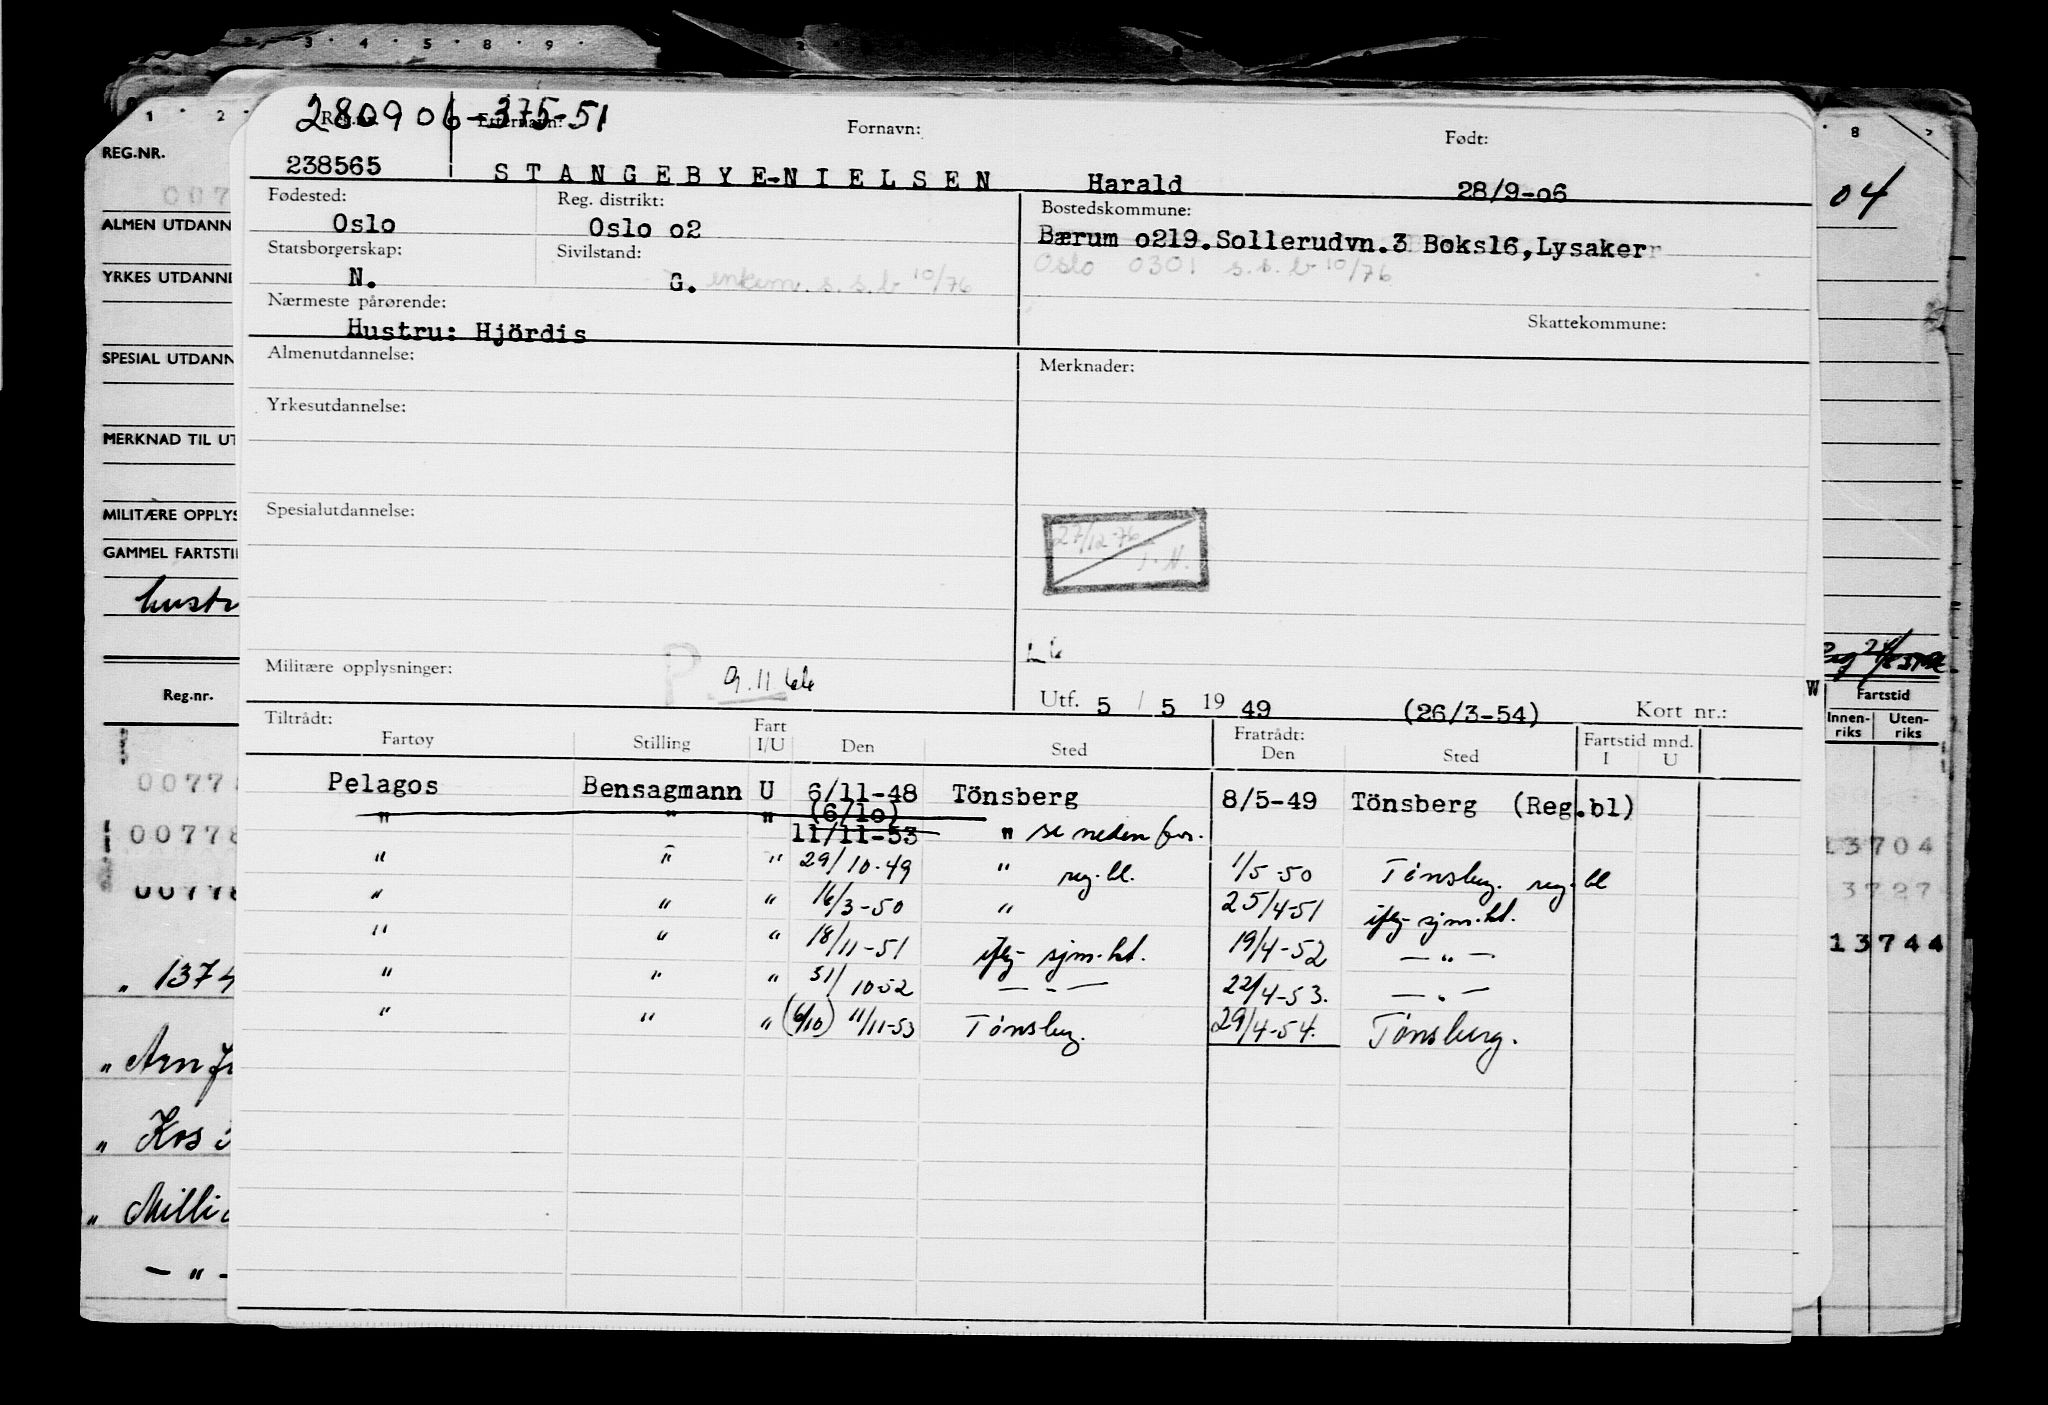 3 · 4 · 5 · 8 · 9 ·
1 · 2
8
REG.NR.
007
ALMEN UTDANN
YRKES UTDANNE
SPESIAL UTDANN
MERKNAD TIL UT
MILITÆRE OPPLYS
GAMMEL FARTSTI
hustr
Reg.nr.
0077
00778
00778
" 1374
" Arn
" Kos
" Milli
— " —
280906-375-51
Reg.nr. Etternavn: Fornavn: Født:
238565 STANGEBYE-NIELSEN Harald 28/9-06
Fødested: Reg. distrikt: Bostedskommune:
Oslo Oslo o2 Bærum o219.Sollerudvn.3 Boks16,Lysaker
Oslo 0301 s.s.b 10/76
Statsborgerskap: Sivilstand:
N. G. enkem. s.s.b 10/76
Nærmeste pårørende: Skattekommune:
Hustru: Hjördis
Almenutdannelse: Merknader:
Yrkesutdannelse:
Spesialutdannelse:
27/12-76
Militære opplysninger: P. 9.11.66
Utf. 5 / 5 19 49 (26/3-54) Kort nr.:
W
Tiltrådt: Fart Fratrådt: Fartstid mnd.
Fartøy Stilling I/U Den Sted Den Sted I U
Pelagos Bensagmann U 6/11-48 Tönsberg 8/5-49 Tönsberg (Reg.bl)
" " " (6/10) 11/11-53 " se nedenfor.
" " " 29/10-49 " reg.bl. 1/5-50 Tønsberg. reg.bl
" " " 16/3-50 " 25/4-51 iflg sjm.kt.
" " " 18/11-51 iflg sjm.kt. 19/4-52 — " —
" " " 31/10-52 — " — 22/4-53. — " —
" " " (6/10) 11/11-53 Tønsberg. 29/4-54. Tønsberg.
04
Fartstid
Innen-riks Uten-riks
13704
3727
13744